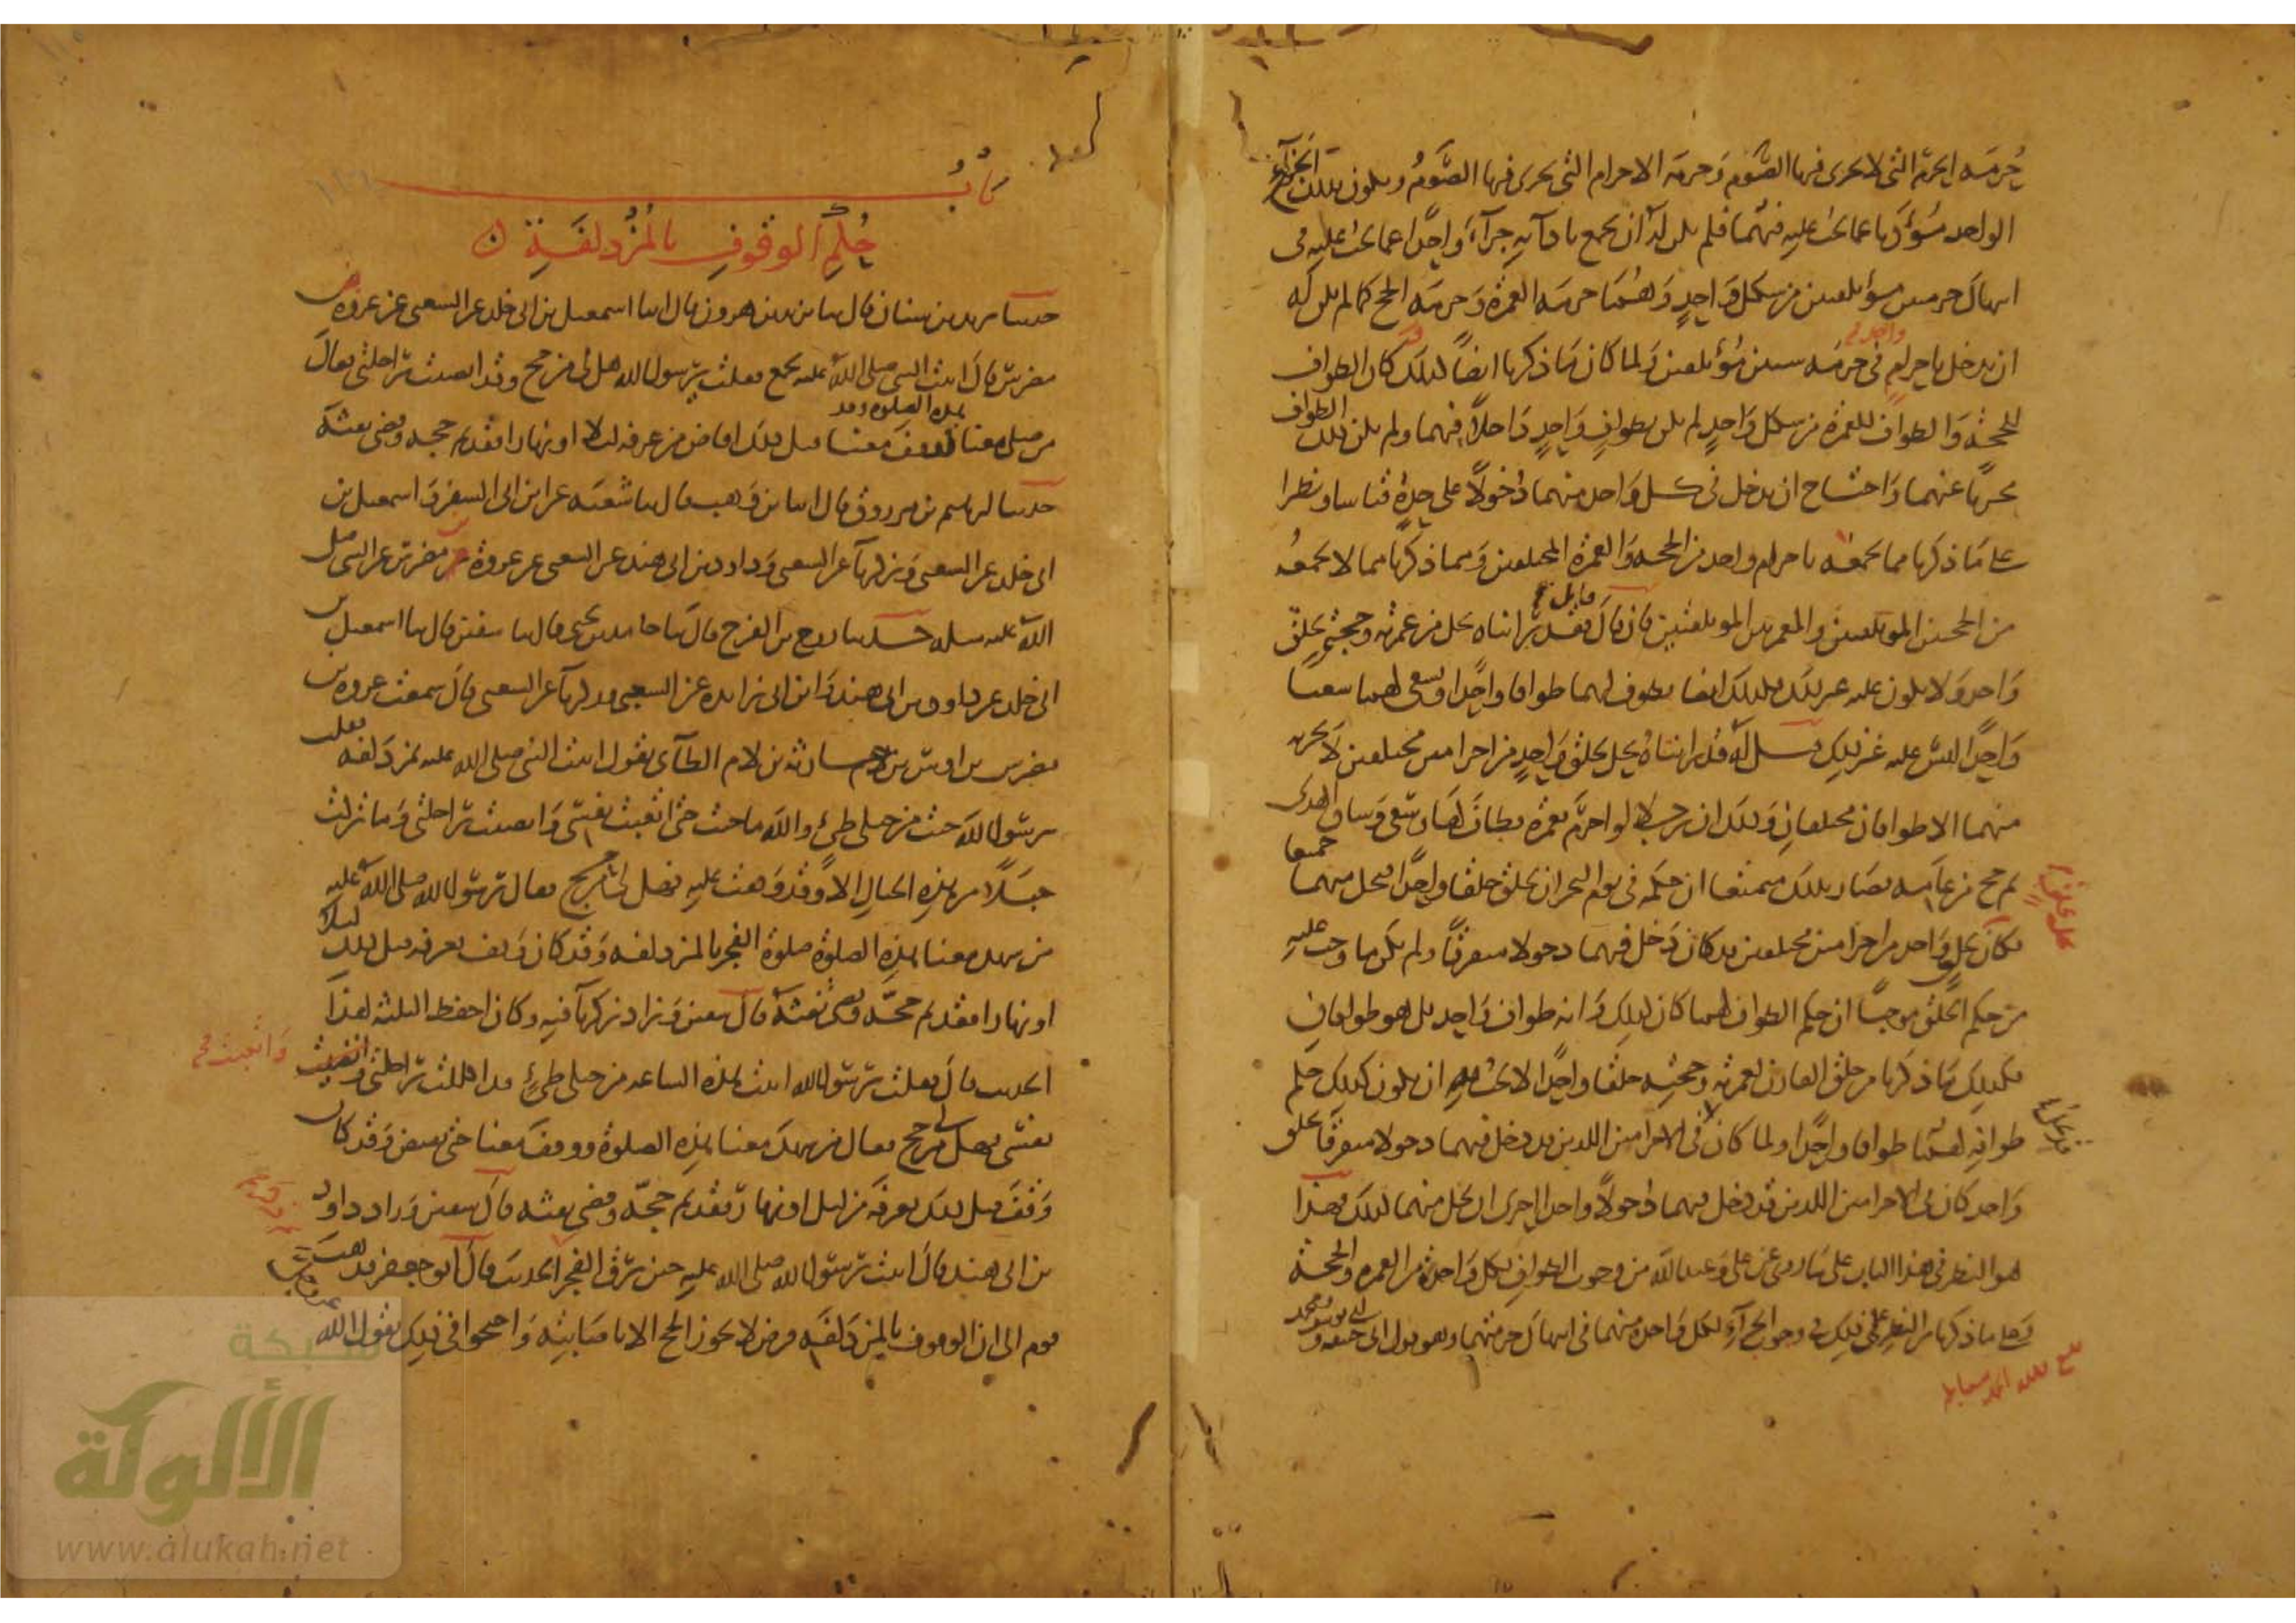 حُرمَه الحرم التى لا يحرى فيها الصَّوم وَحرمَه الاحرام التى يحرى فيها الصَّومُ ويكون بذلك الجزآء
الواحد مُؤدّيا عما يجب عليه فيهما فلم يكن لهُ ان يجمع باداَيه جزآءً وَاحِدًا عما يجب عليه فى
انتهاك حرمتين مؤتلفتين من شكل وَاحِدٍ وَهُمَا حرمَه العمرة وَحرمَه الحج كما لم يكن له
ان يدخل باحرام واحد فى حرمَه شيئين مُؤتلفين وَلما كان مَا ذكرنا ايضًا كذلك كان الطواف
للحجه وَالطواف للعمرة من شكل وَاحِدٍ لم يكن بطوافٍ وَاحِدٍ دَاخلاً فيهما ولم يكن ذلك الطواف
مجزيًا عنهما وَاحتاج ان يدخل فى كل وَاحد منهما دُخولاً على حِدة قياسا ونظرا
على مَا ذكرنا مما يجمعه باحرام واحد من الحجه وَالعمرة المختلفتين وَمما ذكرنا مما لا يجمعُه
من الحجتين المؤتلفتين والعمرتين المؤتلفتين فان قال قايل فقد راَيناه يحل من عمرته وحجته بحلقٍ
وَاحد وَلا يكون عليه غير ذلك فكذلك ايضا يطوف لهما طوافا واحِدًا ويسعى لهما سعيا
وَاحِدًا ليس عليه غير ذلِك قيل لَه قد رايناهُ يحل بحلق وَاحِدٍ من احرامين مختلفين لا يجزيه
فيهما الا طوافان مختلفانِ وَذلك ان رجلا لو احرَم بعمرة فطاَف لَها وَسَعى وَساق الهدى
ثم حج من عاَمِه فصَار بذلك متمتعا ان حكمَه فى يوم النحر ان يحلق حلقا واحِدًا فيحل منهما جميعا
فكان يحلُّ بحلق وَاحد من احرامين مختلفين قد كان دَخل فيهما دخولا متفرقًا ولم يكن ما وجب عليهِ
من حكم الحَلْق موجبًا ان حكم الطواف لهما كان كذلِك وَانه طواف وَاحِد بل هو طوافانِ
فكذلِك مَا ذكرنا من حلق القارن لعمرته وَحجته حلقا واحِدًا لا يجب به ان يكون كذلِك حكم
طوافِه لهُمَا طوافا واحِدًا ولما كان فى الاحرامين اللذين قد دخل فيهما دخولا متفرقًا بحلق
وَاحد كان فى الاحرامين اللذين قد دخل فيهما دُخولاً واحدا احرى ان يحل منهما كذلك فهذا
هو النظر فى هذا الباب على مَا روى عن على وَعبد اللّه من وجوب الطوافِ لكل وَاحِدة من العمره والحجة
وَعلى ما ذكرنا من النظرِ على ذلِك فى وجوب الجزآءِ لكل وَاحد منهما فى انتهاك حرمتهما وهو قول ابى حنيفه وَ ابى يوسف ومحمد
بابُ
حُكْمِ الوقوفِ بالمُزْدلفَةِ
حدثنا يزيد بن سنان قال ثنا يزيد بن هرون قال انا اسمعيل بن ابى خلد عن الشعبى عن عروة بن
مضرس قال اتيت النبى صلى اللّهُ عليه بجمع فقلت يرسول الله هل لى من حج وقد انضيت راحلتى فقال
من صلى معنا هذه الصلوه وقد وَقف معنا قبل ذلك افاض من عرفه ليلا او نهارا فقد تم حجه وقضى تفثه
حدثنا ابرهيم بن مرزوق قال انا بن وَهب قال ثنا شعبَه عن ابن ابى السفر وَاسمعيل بن
ابى خلد عن الشعبى وَزكريآ عن الشعبى وَداود بن ابى هند عن الشعبى عن عروة بن مضرس عن النبى صلى
اللّهُ عليه وسلم حدثنا روح بن الفرج قال ثنا حامد بن يحيى قال ثنا سفين قال ثنا اسمعيل بن
ابى خلد عن داوود بن ابى هند وَابن ابى زايده عن الشعبى وزكريآ عن الشعبى قال سمعت عروه بن
مضرس بن اوس بن حارثه بن لام الطآى يقول اتيت النبى صلى الله عليه بمزدَلفه فقلت
يرسول اللّه جئت من جبلى طيئ واللّه ما جئت حتى اتعبت نفسى وَانضيت راحلتى وَما تركت
جَبَلاً من هذِهِ الجبال الا وَقد وَقفت عليهِ فهل لى من حج فقال رسول الله صلى الله عليهِ
من شهد معنا هذِه الصلوة صلوة الفجر بالمزدلفه وَقد كان وَقف بعرفه قبل ذلك ليلا
او نهارا فقد تم حجّه وقضى تفثَه قال سفين وَزاد زكريآ فيهِ وكان احفظ الثلثه لهذا
الحديث قال فقلت يرسول الله اتيت هذه الساعه من جبلى طيئٍ قد اكللت راحلتى واتعبت
وَاتعبت صح
نفسى فهل لى من حج فقال من شهدَ معنا هذِهِ الصلوة ووقفَ معنا حتى نفيض وَقد كان
وَقفَ قبل ذلك بعرفَه من ليل او نهار فقد تم حجّه وقضى تفثه قال سفين وَزاد داود
بن ابى هند قال اتيت رسول الله صلى الله عليهِ حين برق الفجر الحديث قال ابو جعفر فذهب
قوم الى ان الوقوف بالمزدَلفَه فرض لا يجوز الحج الا باصَابته وَاحتجوا فى ذلِك بقول الله
شبكة
الألوكة
www.alukah.net